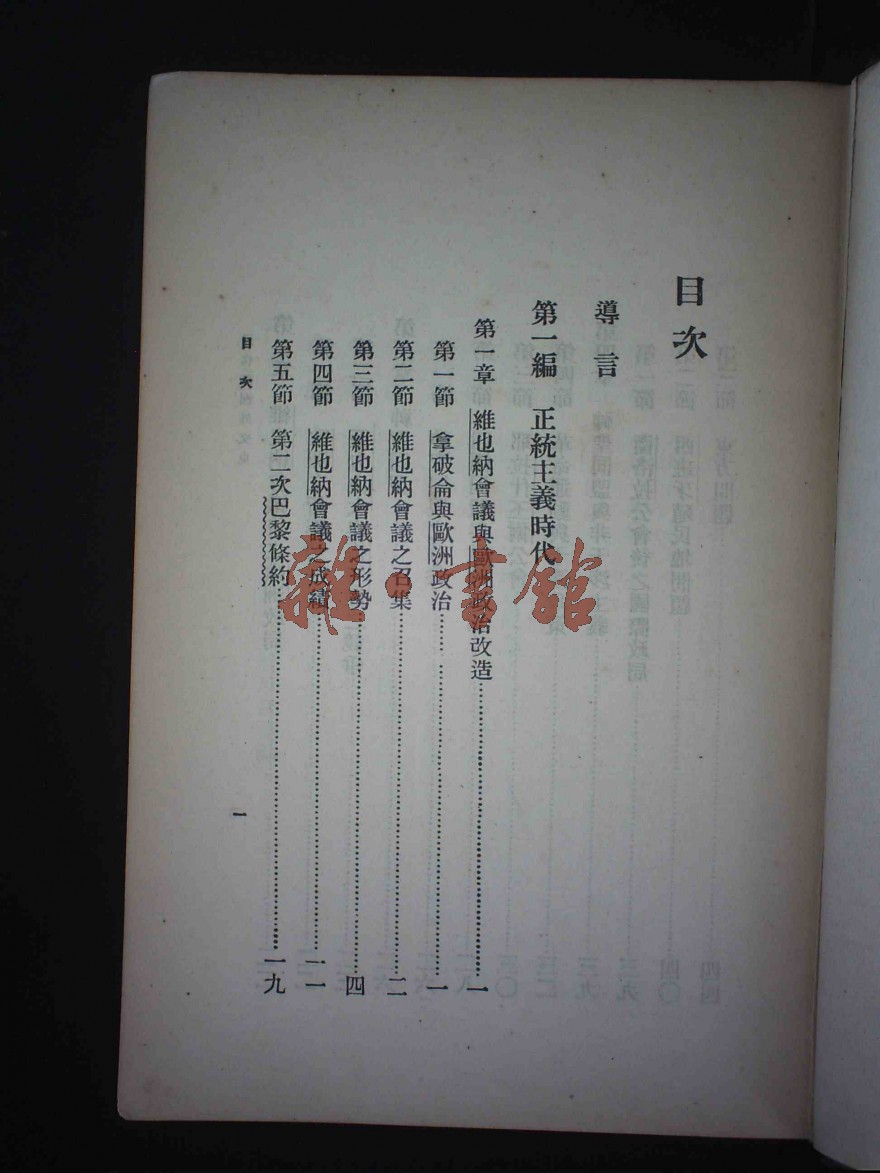 目次
導言
第一編 正統主義時代
第一章 維也納會議與歐洲政治改造……………………一
第一節 拿破侖與歐洲政治……………………一
第二節 維也納會議之召集……………………二
第三節 維也納會議之形勢……………………四
第四節 維也納會議之成績……………………一一
第五節 第二次巴黎條約……………………一九
目次
一
雜·書館